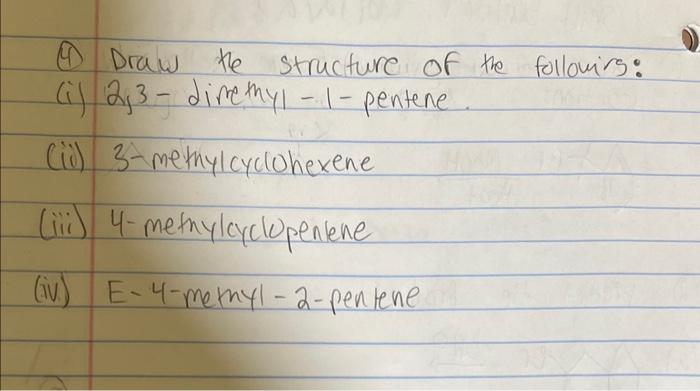 ④ Draw the structure of the followirs:
(i) 2,3-dimethyl-1-pentene.
(ii) 3-methylcyclohexene
(iii) 4-methylcyclopentene
(iv.) E-4-methyl-2-pentene